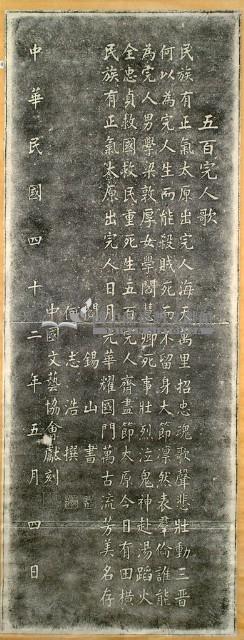 五百完人歌
民族有正氣太原出完人海天萬里招忠魂歌聲悲壯動三晉
何以為完人生而能殺賊死而不留身大節凜然表羣倫誰能
為完人男學梁敦厚女學閻慧卿死事壯烈泣鬼神赴湯蹈火
全忠貞救國救民重死生五百完人齊盡節太原今日有田橫
民族有正氣太原出完人日月光華耀國門萬古流芳美名存
閻錫山書
何志浩撰
中國文藝協會獻刻
中華民國四十二年五月四日